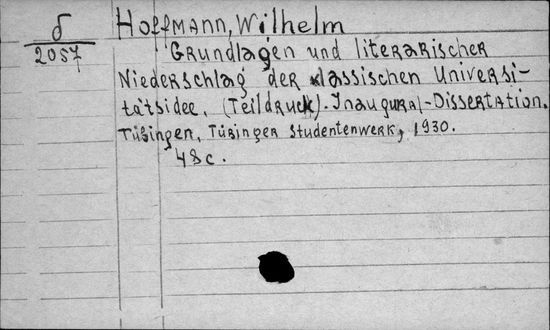 δ
2057
Hoffmann, Wilhelm
Grundlagen und literarischer
Niederschlag der klassischen Universi-
tätsidee. (Teildruck). Inaugural-Dissertation.
Tübingen, Tübinger Studentenwerk, 1930.
48c.